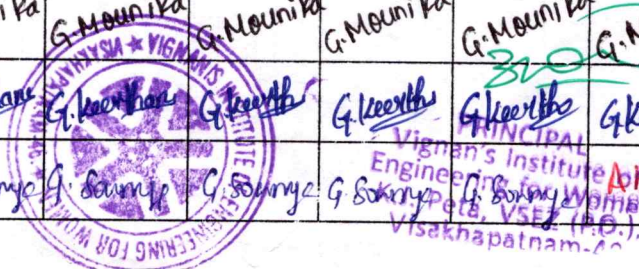 G.Mounika G.Mounika G.Mounika G.Mounika
G.Keerthana G.Keerth G.Keerth G.Keertho
G.Sowmya G.Sowmya G.Sowmya G.Sowmya
VIGNAN'S INSTITUTE OF ENGINEERING FOR WOMEN
VISAKHAPATNAM
PRINCIPAL
Vignan's Institute of
Engineering for Women
Peta, VSEZ (P.O.)
Visakhapatnam